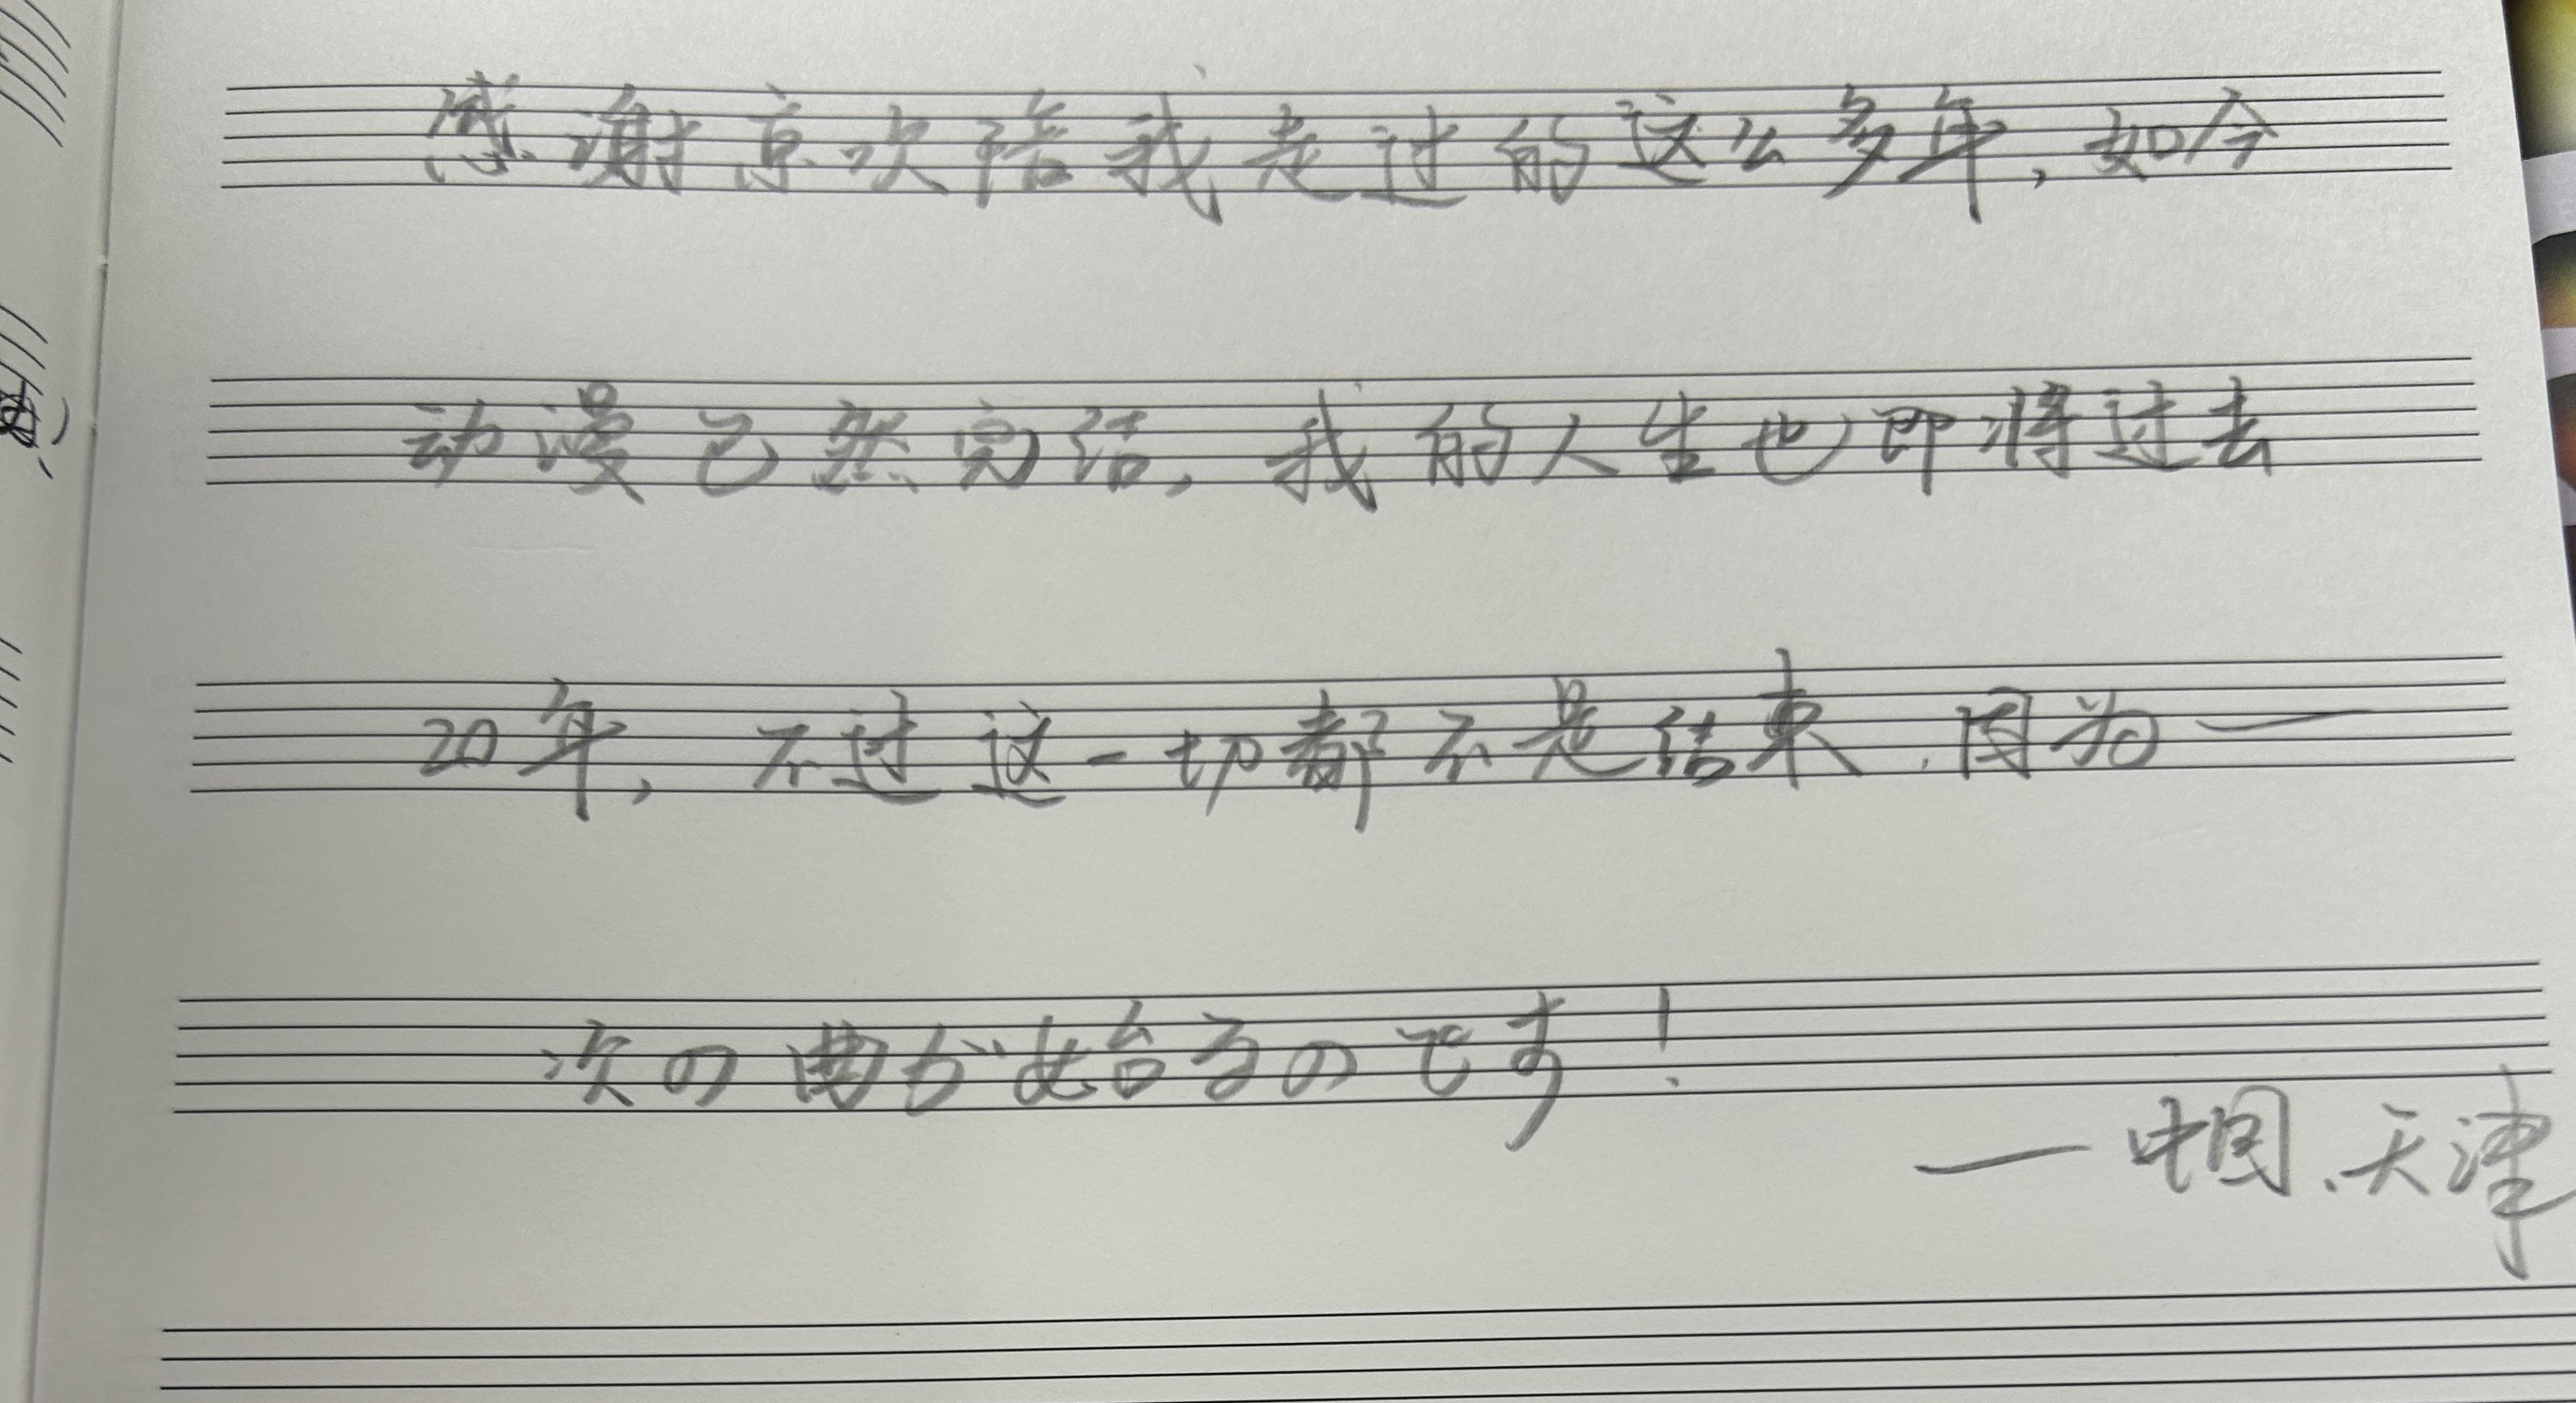 感谢京吹陪我走过的这么多年，如今
动漫已然完结，我的人生也即将过去
20年，不过这一切都不是结束，因为—
次の曲が始るのです！
—中国.天津